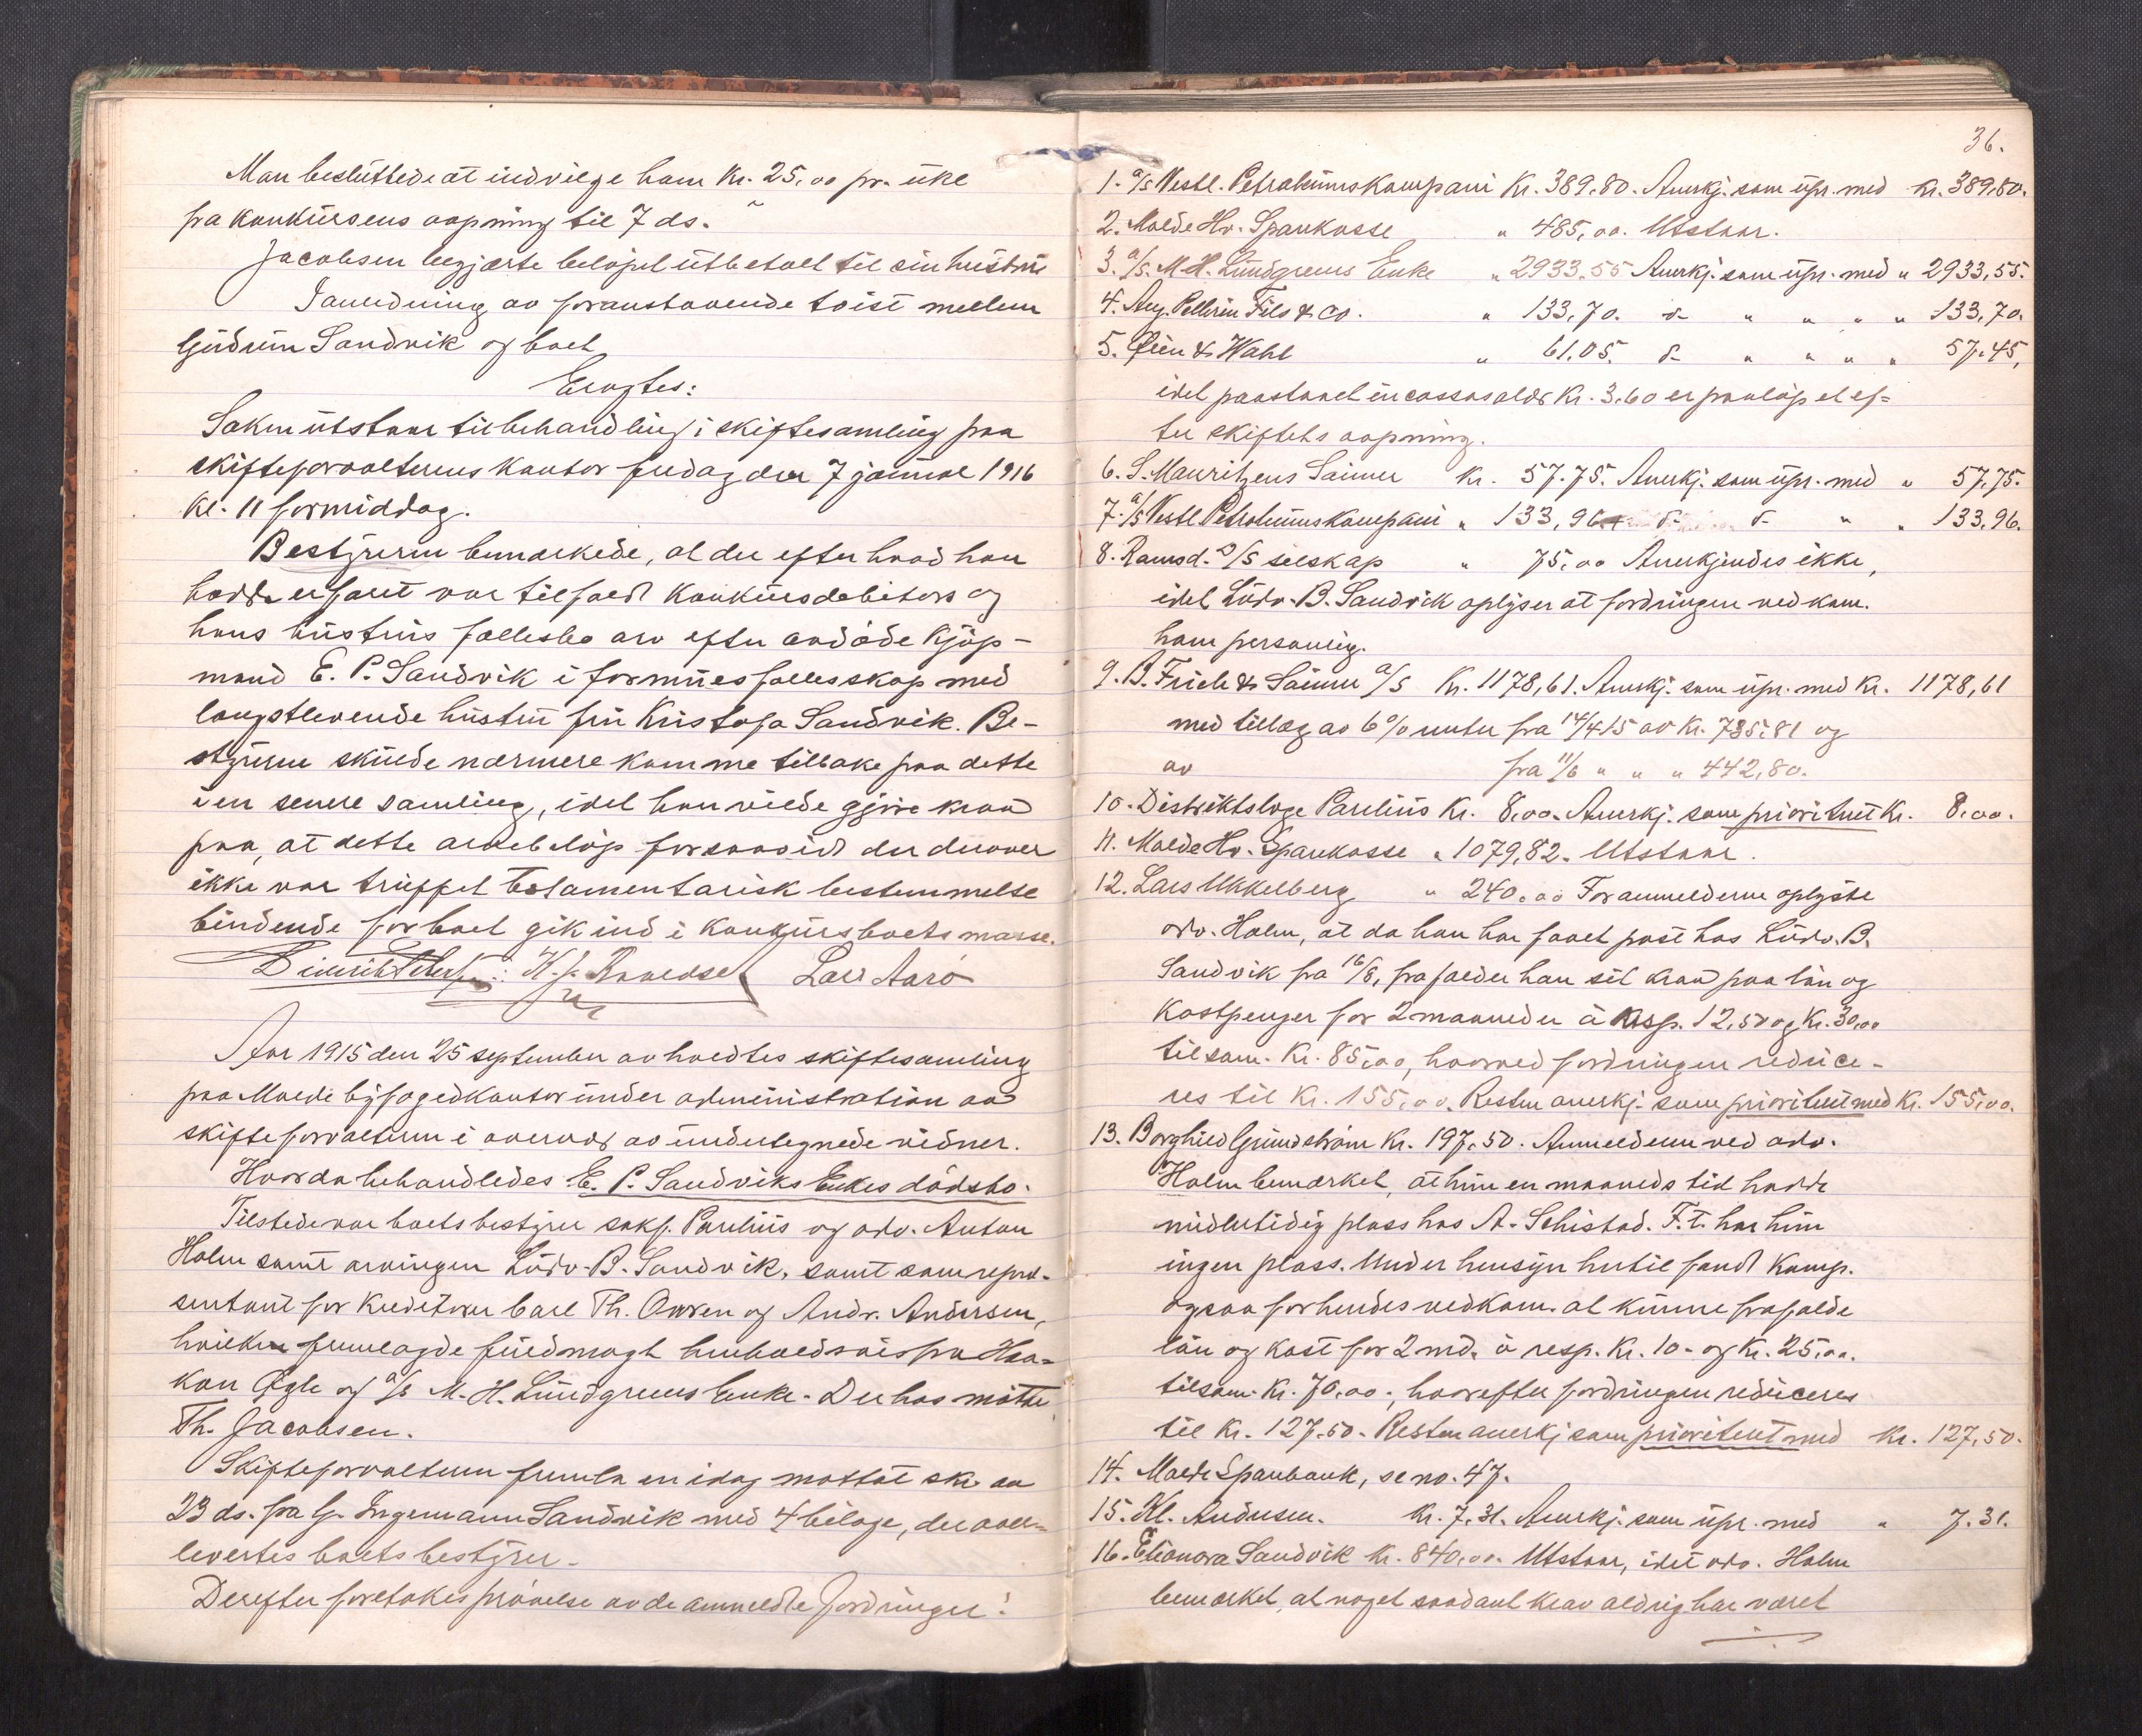 Man besluttede at indvilge ham Kr. 25,00 pr. uke
fra konkursens aapning til 7 ds.
Jacobsen begjærte beløpet utbetalt til sin hustru
I anledning av foranstaaende tvist mellem
Gudrun Sandvik og boet
Eragtes:
Saken utstaar til behandling i skiftesamling paa
skifteforvalterens kontor fredag den 7 januar 1916
kl. 11 formiddag.
Bestyreren bemærkede, at der efter hvad han
hadde erfaret var tilfaldt konkursdebitors og
hans hustrus fællesbo arv efter avdøde kjøp-
mand E. P. Sandvik i formuesfællesskap med
lengstlevende hustru fru Kristofa Sandvik. Be-
styreren skulde nærmere komme tilbake paa dette
i en senere samling, idet han vilde gjøre krav
paa, at dette arvebeløp forsaavidt der derover
ikke var truffet testamentarisk bestemmelse
bindende for boet gik ind i konkursboets masse.
Lars Aarö
Aar 1915 den 25 september avholdtes skiftesamling
paa Molde byfogedkontor under administration av
skifteforvalteren i overvær av undertegnede vidner.
Hvorda behandledes E. P. Sandviks Enkes dödsbo.
Tilstede var boets bestyrer sakf. Paulius og adv. Anton
Holm samt arvingen Ludv. B. Sandvik, samt som repræ-
sentant for kreditorer Carl Th. Owren og Andr. Andersen,
hvilken fremlagde fuldmagt henholdsvis fra Haa-
kon Øgle og a/s M. H. Lundgreens Enke. Derhos mötte
Th. Jacobsen.
Skifteforvalteren fremla en idag mottat skr. av
23 ds. fra G. Ingemann Sandvik med 4 bilage, der over-
levertes boets bestyrer.
Derefter foretokes prövelse av de anmeldte fordringer:
36.
1. a/s Vestl. Petroleumskompani Kr. 389.80. Anerkj. som upr. med Kr. 389,80.
2. Molde Hv. Sparkasse " 485,00. Utstaar.
3. a/s. M. H. Lundgreens Enke " 2933.55 Anerkj. som upr. med " 2933,55.
4. Aug. Pellerin Fils & Co. " 133,70. d- " " " " 133,70.
5. Lien & Wahl " 61,05. d- " " " " 57.45,
idet paastaaet incassosalær Kr. 3.60 er paaløpet ef-
ter skiftets aapning.
6. S. Mauritzens Sønner Kr. 57.75. Anerkj. som upr. med " 57,75.
7. a/s Vestl. Petroleumskompani " 133,96 d- d- " " 133.96.
8. Ramsd. D/S selskap " 75,00 Anerkjendes ikke,
idet Ludv. B. Sandvik oplyser at fordringen vedkom.
ham personlig.
9. B. Friele & Sönner a/s Kr. 1178,61. Anerkj. som upr. med Kr. 1178,61
med tillæg av 6% renter fra 14/4 15 av Kr. 735.81 og
av fra 11/6 " " " 442,80.
10. Distriktslæge Paulius Kr. 8,00. Anerkj. som prioritert Kr. 8.00.
11. Molde Hv. Sparkasse " 1079,82. Utstaar.
12. Lars Ukkelberg " 240.00 For anmelderne oplyste
adv. Holm, at da han har faaet post hos Ludv. B.
Sandvik fra 16/8, frafalder han sit krav paa lön og
kostpenger for 2 maaneder à resp. 12,50 og Kr. 30,00
tilsam. Kr. 85,00, hvorved fordringen reduce-
res til Kr. 155,00. Resten anerkj. som prioritert med Kr. 155,00.
13. Borghild Grundström Kr. 197.50. Anmelderen ved adv.
Holm bemærket, at hun en maaneds tid hadde
midlertidig plass hos A. Schistad. F.t. har hun
ingen plass. Under hensyn hertil fandt komp.
ogsaa for hendes vedkom. at kunne frafalde
lön og kost for 2 md. à resp. Kr. 10.- og Kr. 25,00.
tilsam. Kr. 70,00, hvorefter fordringen reduceres
til Kr. 127.50. Resten anerkj som prioritert med Kr. 127,50.
14. Molde Sparebank, se no. 47.
15. Kl. Andersen. Kr. 7.31. Anerkj. som upr. med " 7.31.
16. Elionora Sandvik Kr. 840,00. Utstaar, idet adv. Holm
bemærket, at noget saadant krav aldrig har været